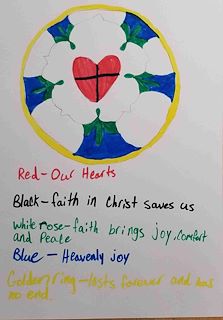 Red-Our Hearts
Black-faith in Christ saves us
white rose-faith brings joy, comfort
and Peace
Blue - Heavenly joy
Golden ring-lasts forever and has
no end.